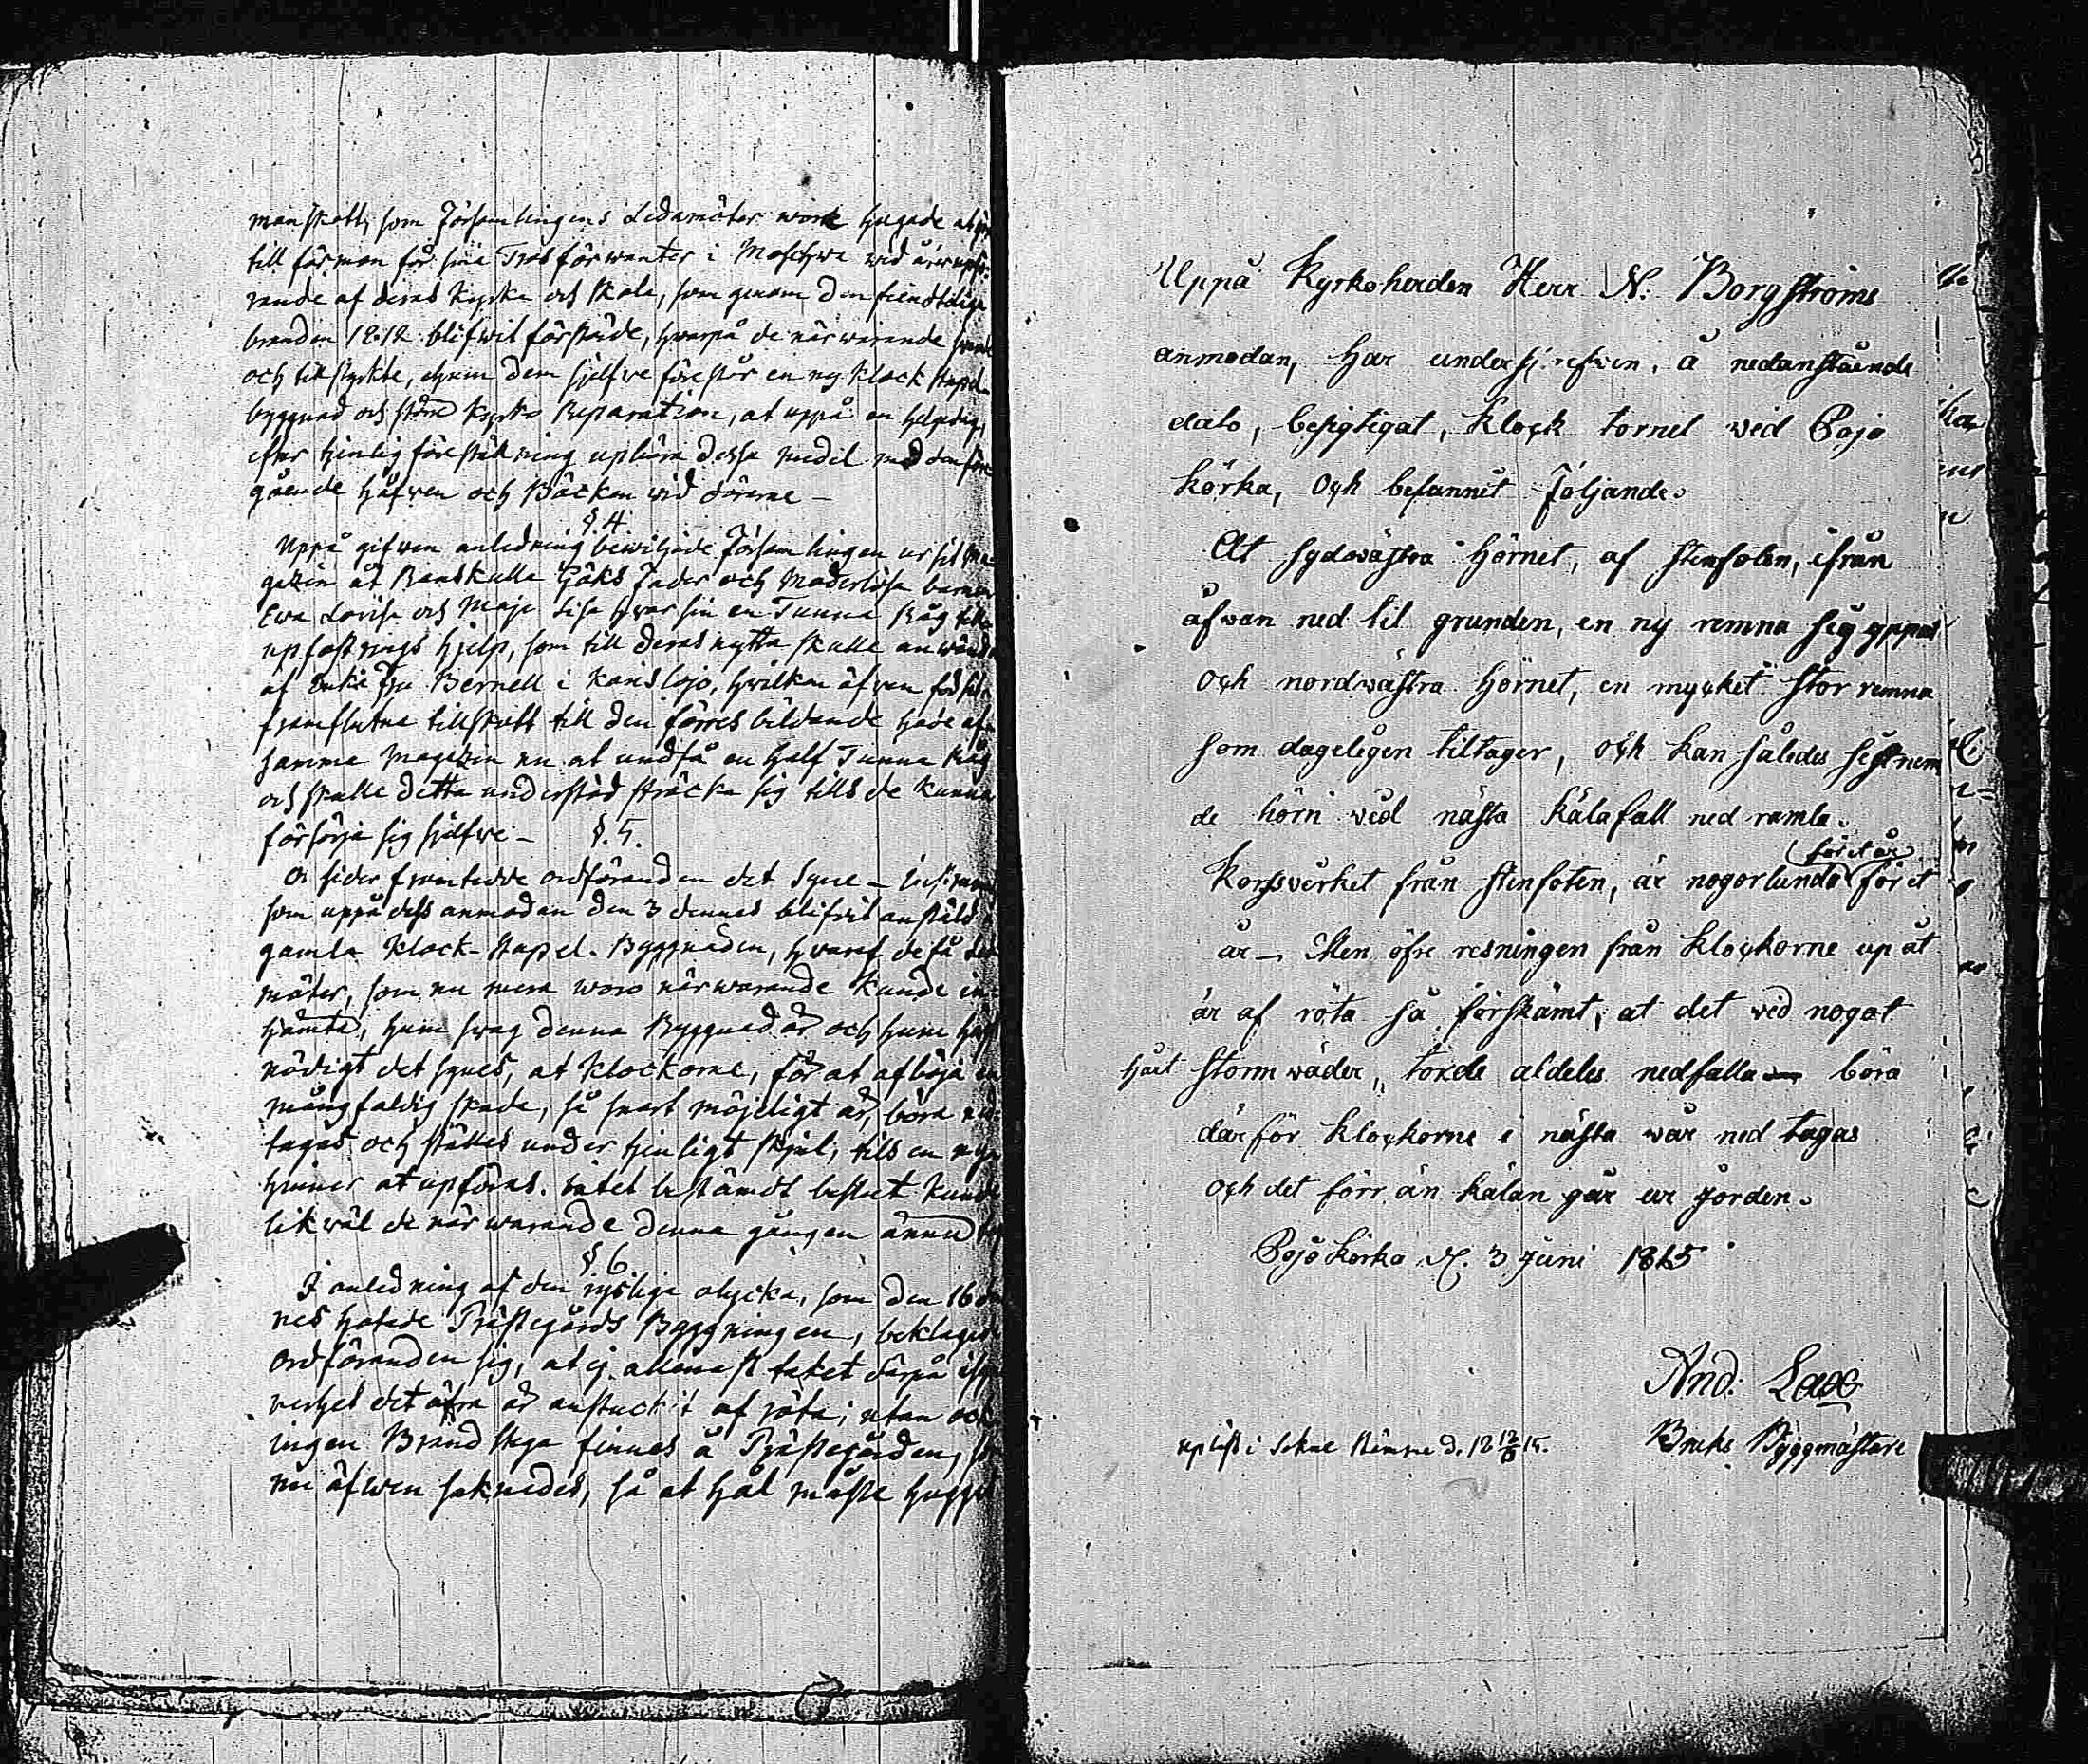 manskott, som Församlingens Ledamöter wore hugade at
till förmon för sina Trosförwanter i Moschwa wid
rande af deras Kyrka och Skola, som genom den fiendtliga
branden 1812 blifwit förstörde, hwarpå de närwarande
och tillstyrkte, ehuru dem sjelfwe förestår en ny Klock stapel
byggnad och större Kyrko Reparation, at uppå en helgdag,
efter tjenlig föreställning upbära dessa medel med
gående håfwen och Bäcken wid dörarne –
§. 4.
Uppå gifwen anledning bewiljade Församlingen ur sit Ma
gazin åt Ranskulla Göks Fader och Moderlösa barnen
Ewa Lovisa och Maja Lisa hwar sin en Tunna Råg till
upfostrings hjelp, som till deras nytta skulle anwändas
af Enke Fru Bernell i Kanslojo, hwilken äfwen
framflutne tillskott till den förres bildande hade af
samma Magazin nu at undfå en half Tunna Råg
och skulle detta understöd sträcka sig tills de kunna
försörja sig sjelfwe – §. 5.
framtedde ordföranden det Syne –
som uppå dess anmodan den 3 dennes blifvit anstäld
gamla Klock-stapel-Byggnaden, hwaraf de få Leda
möter, som nu mera woro närwarande kunde in
hämta, huru swag denna Byggnad är och huru
nödigt det synes, at Klockorne, för at afböja en
mångfaldig skada, så snart möjeligt är, böra ned
tagas och ställas under tjenligt skjul, tills en ny
hinner at upföras. Intet bestämdt beslut kunde
likwäl de närwarande denna gången ännu
§ 6.
I anledning af den rysliga olycka, som den 16
nes hotade Prästegårds Byggningen, beklagade
ordföranden sig, at ej allenast taket därpå
det öfra är anstuckit af röta, utan ock
ingen Brandstega finnes å Prästegården,
nu äfwen saknades, så at hål måste huggas
Uppå Kyrkoherden Herr N. Borgströms
anmodan, har undersk refven, å nedanstående
dato, besigtigat, Klock tornet wid Pojo
körka, och befannit Följande.
At sydwästra hörnet, af stenfoten, ifrån
äfvan ned til grunden, en ny remna sig yppat
och nordwästra hörnet, en mycket stor remna
som dageligen tiltager, och kan således sistnem
de hörn vid nästa kälafall ned ramla.
för et år
Korssvärket från stenfoten, är nogorlunda för et
år – Men öfre resningen från Klockorne up åt
är af röta så förskämt, at det wid nogot
hårt storm wäder, torde aldeles nedfalla – böra
därför Klockorne i nästa wår ned tagas
och det förr än kälan går ur jorden.
Pojo Körka d. 3 Juni 1815
And: Lax
upläst i Sokne Stämne d. 18 12/6 15. Bruks Byggmästare